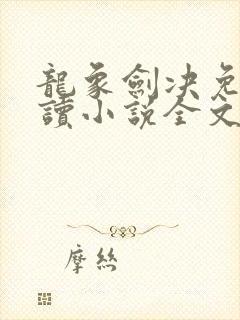 龍象劍決免
讀小說全文
摩絲